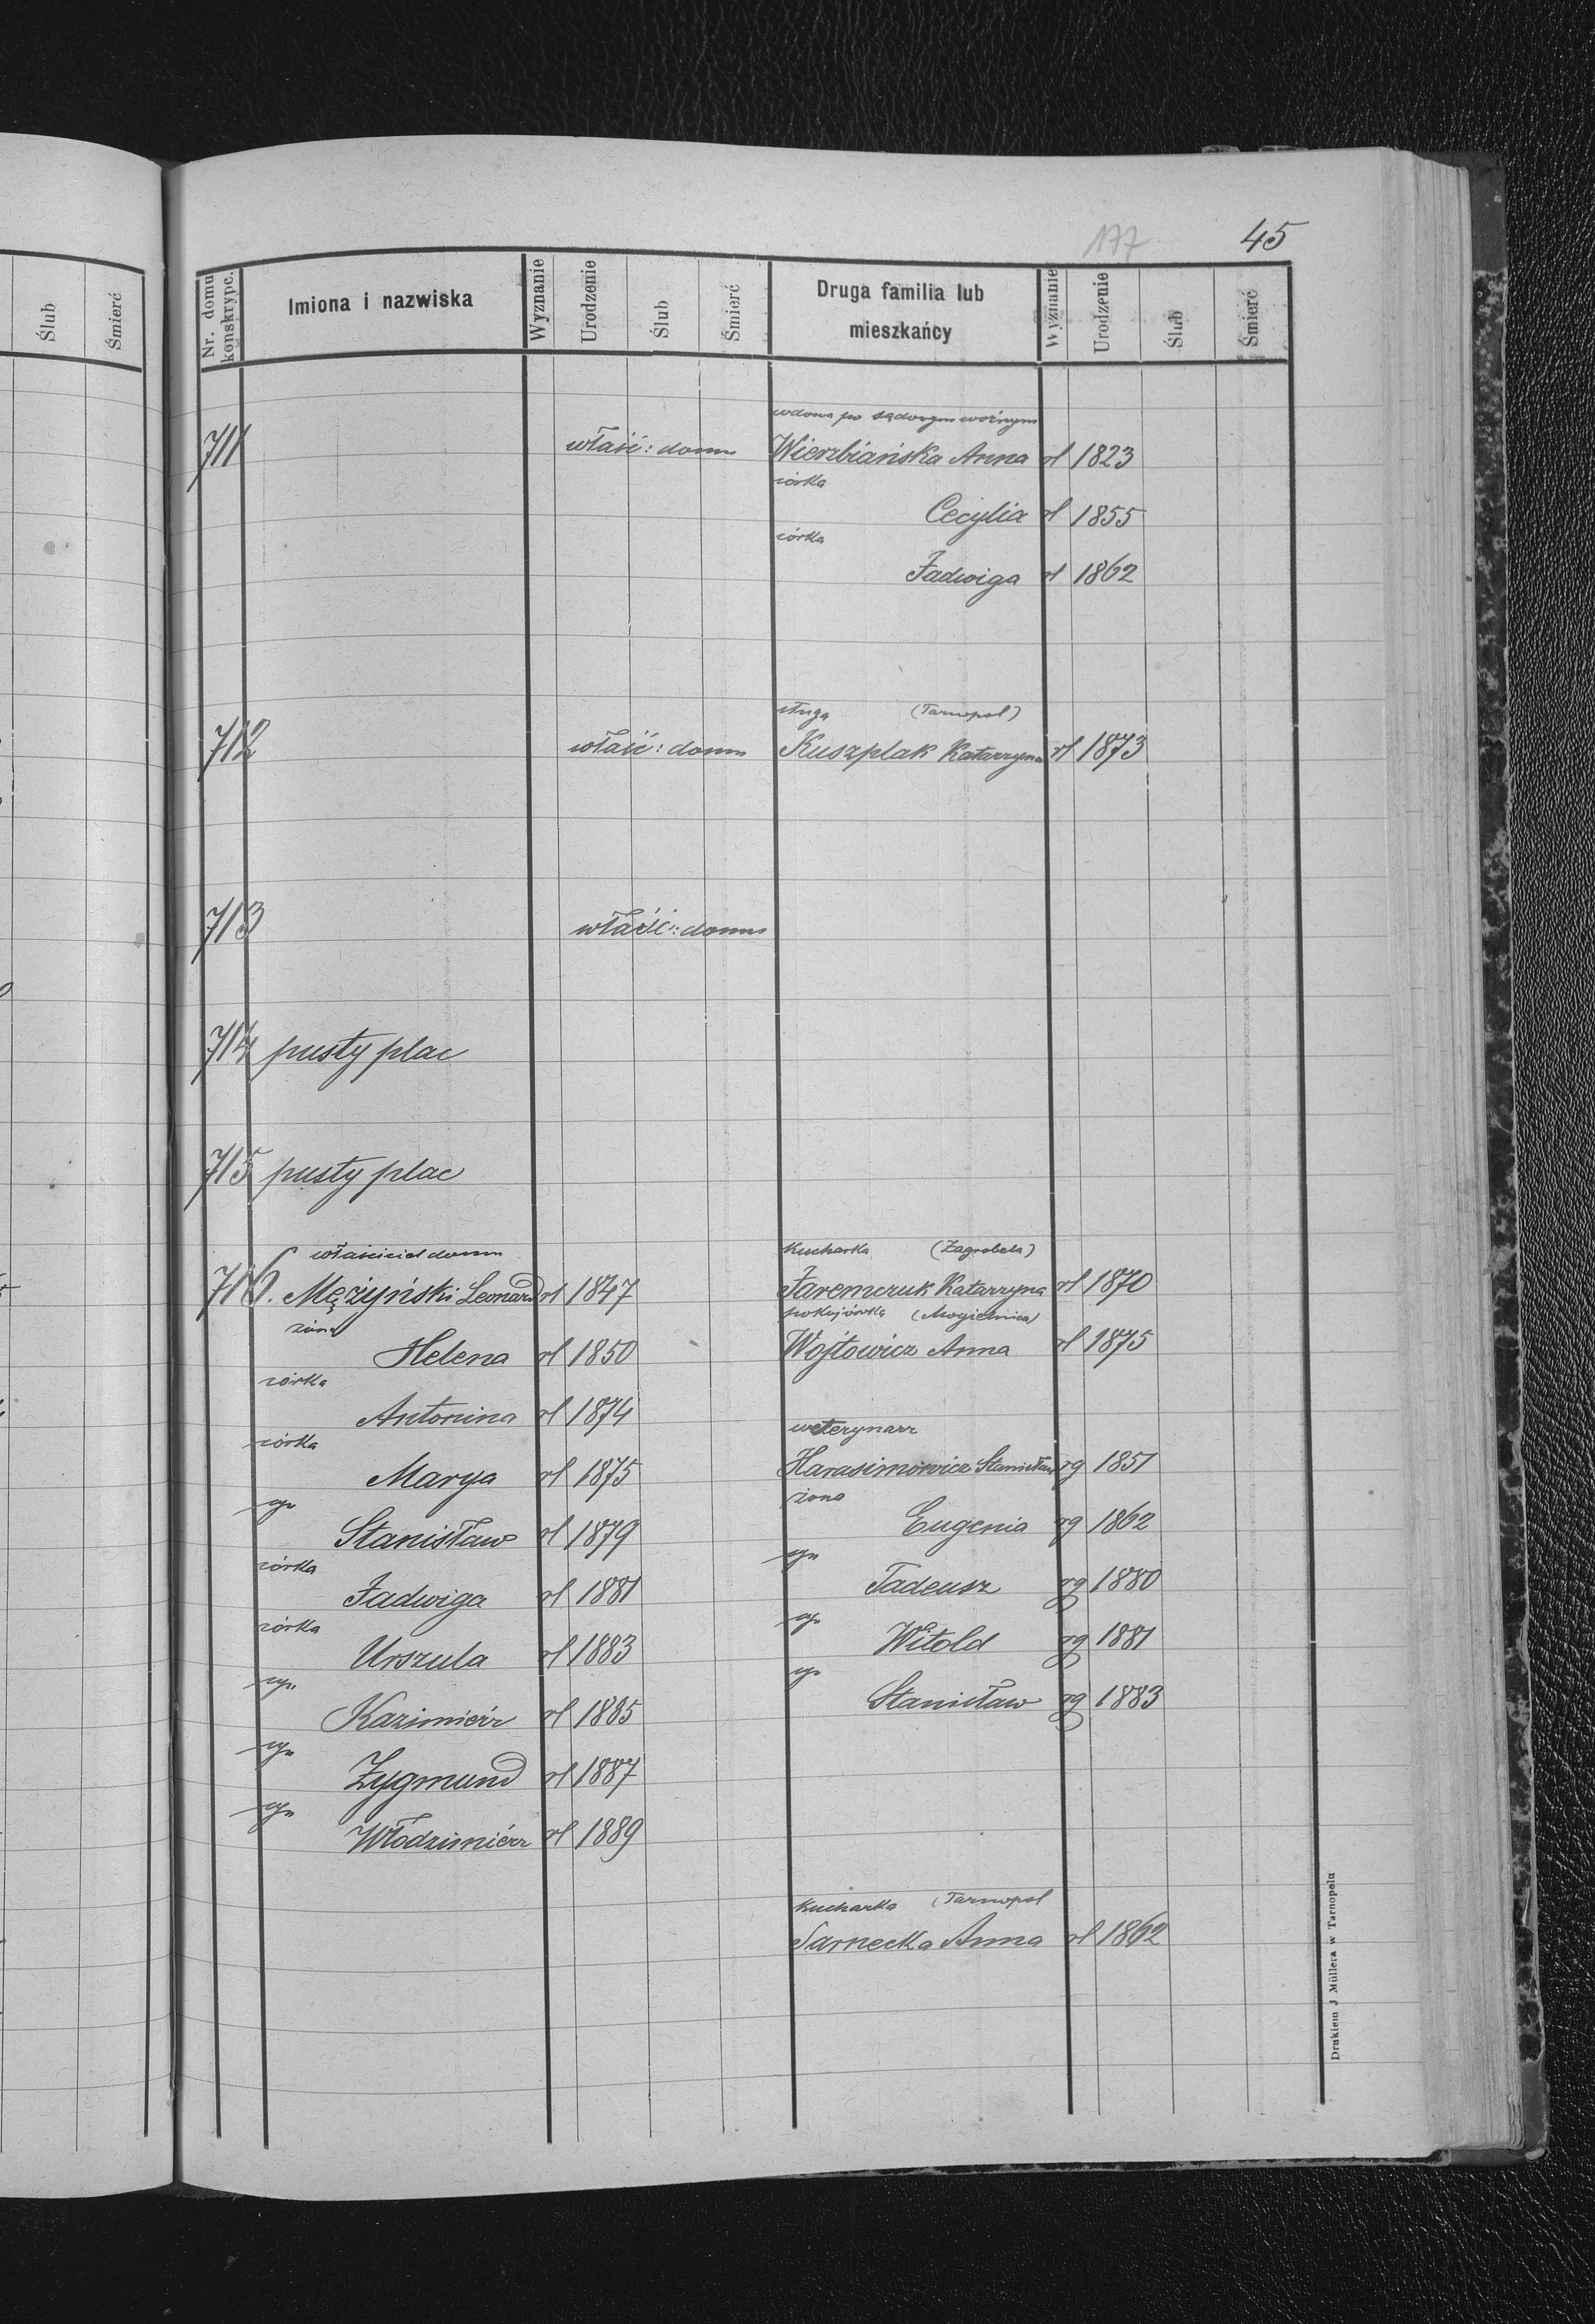 177
45
Ślub
Śmierć
Nr. domu konskrypc.
Imiona i nazwiska
Wyznanie
Urodzenie
Ślub
Śmierć
Druga familia lub
mieszkańcy
Wyznanie
Urodzenie
Ślub
Śmierć
wdowa po sądowym woźnym
711 właść: domu Wierzbiańska Anna rl 1823
córka
Cecylia rl 1855
córka
Jadwiga rl 1862
sługa (Tarnopol)
712 właść: domu Kuszplak Katarzyna rl 1873
713 właść: domu
714 pusty plac
715 pusty plac
właściciel domu
716. Mężyński Leonard rl 1847
żona
Helena rl 1850
córka
Antonina rl 1874
córka
Marya rl 1875
syn
Stanisław rl 1879
córka
Jadwiga rl 1881
córka
Urszula rl 1883
syn
Kazimiérz rl 1885
syn
Zygmund rl 1887
syn
Włodzimiérz rl 1889
Kucharka (Zagrobela)
Jaremczuk Katarzyna rl 1870
pokojówka (Mogielnica)
Wojtowicz Anna rl 1875
weterynarz
Harasimowicz Stanisław rg 1851
żona
Eugenia rg 1862
syn
Tadeusz rg 1880
syn
Witold rg 1881
syn
Stanisław rg 1883
Kucharka (Tarnopol
Sarnecka Anna rl 1862
Drukiem J Müllera w Tarnopolu